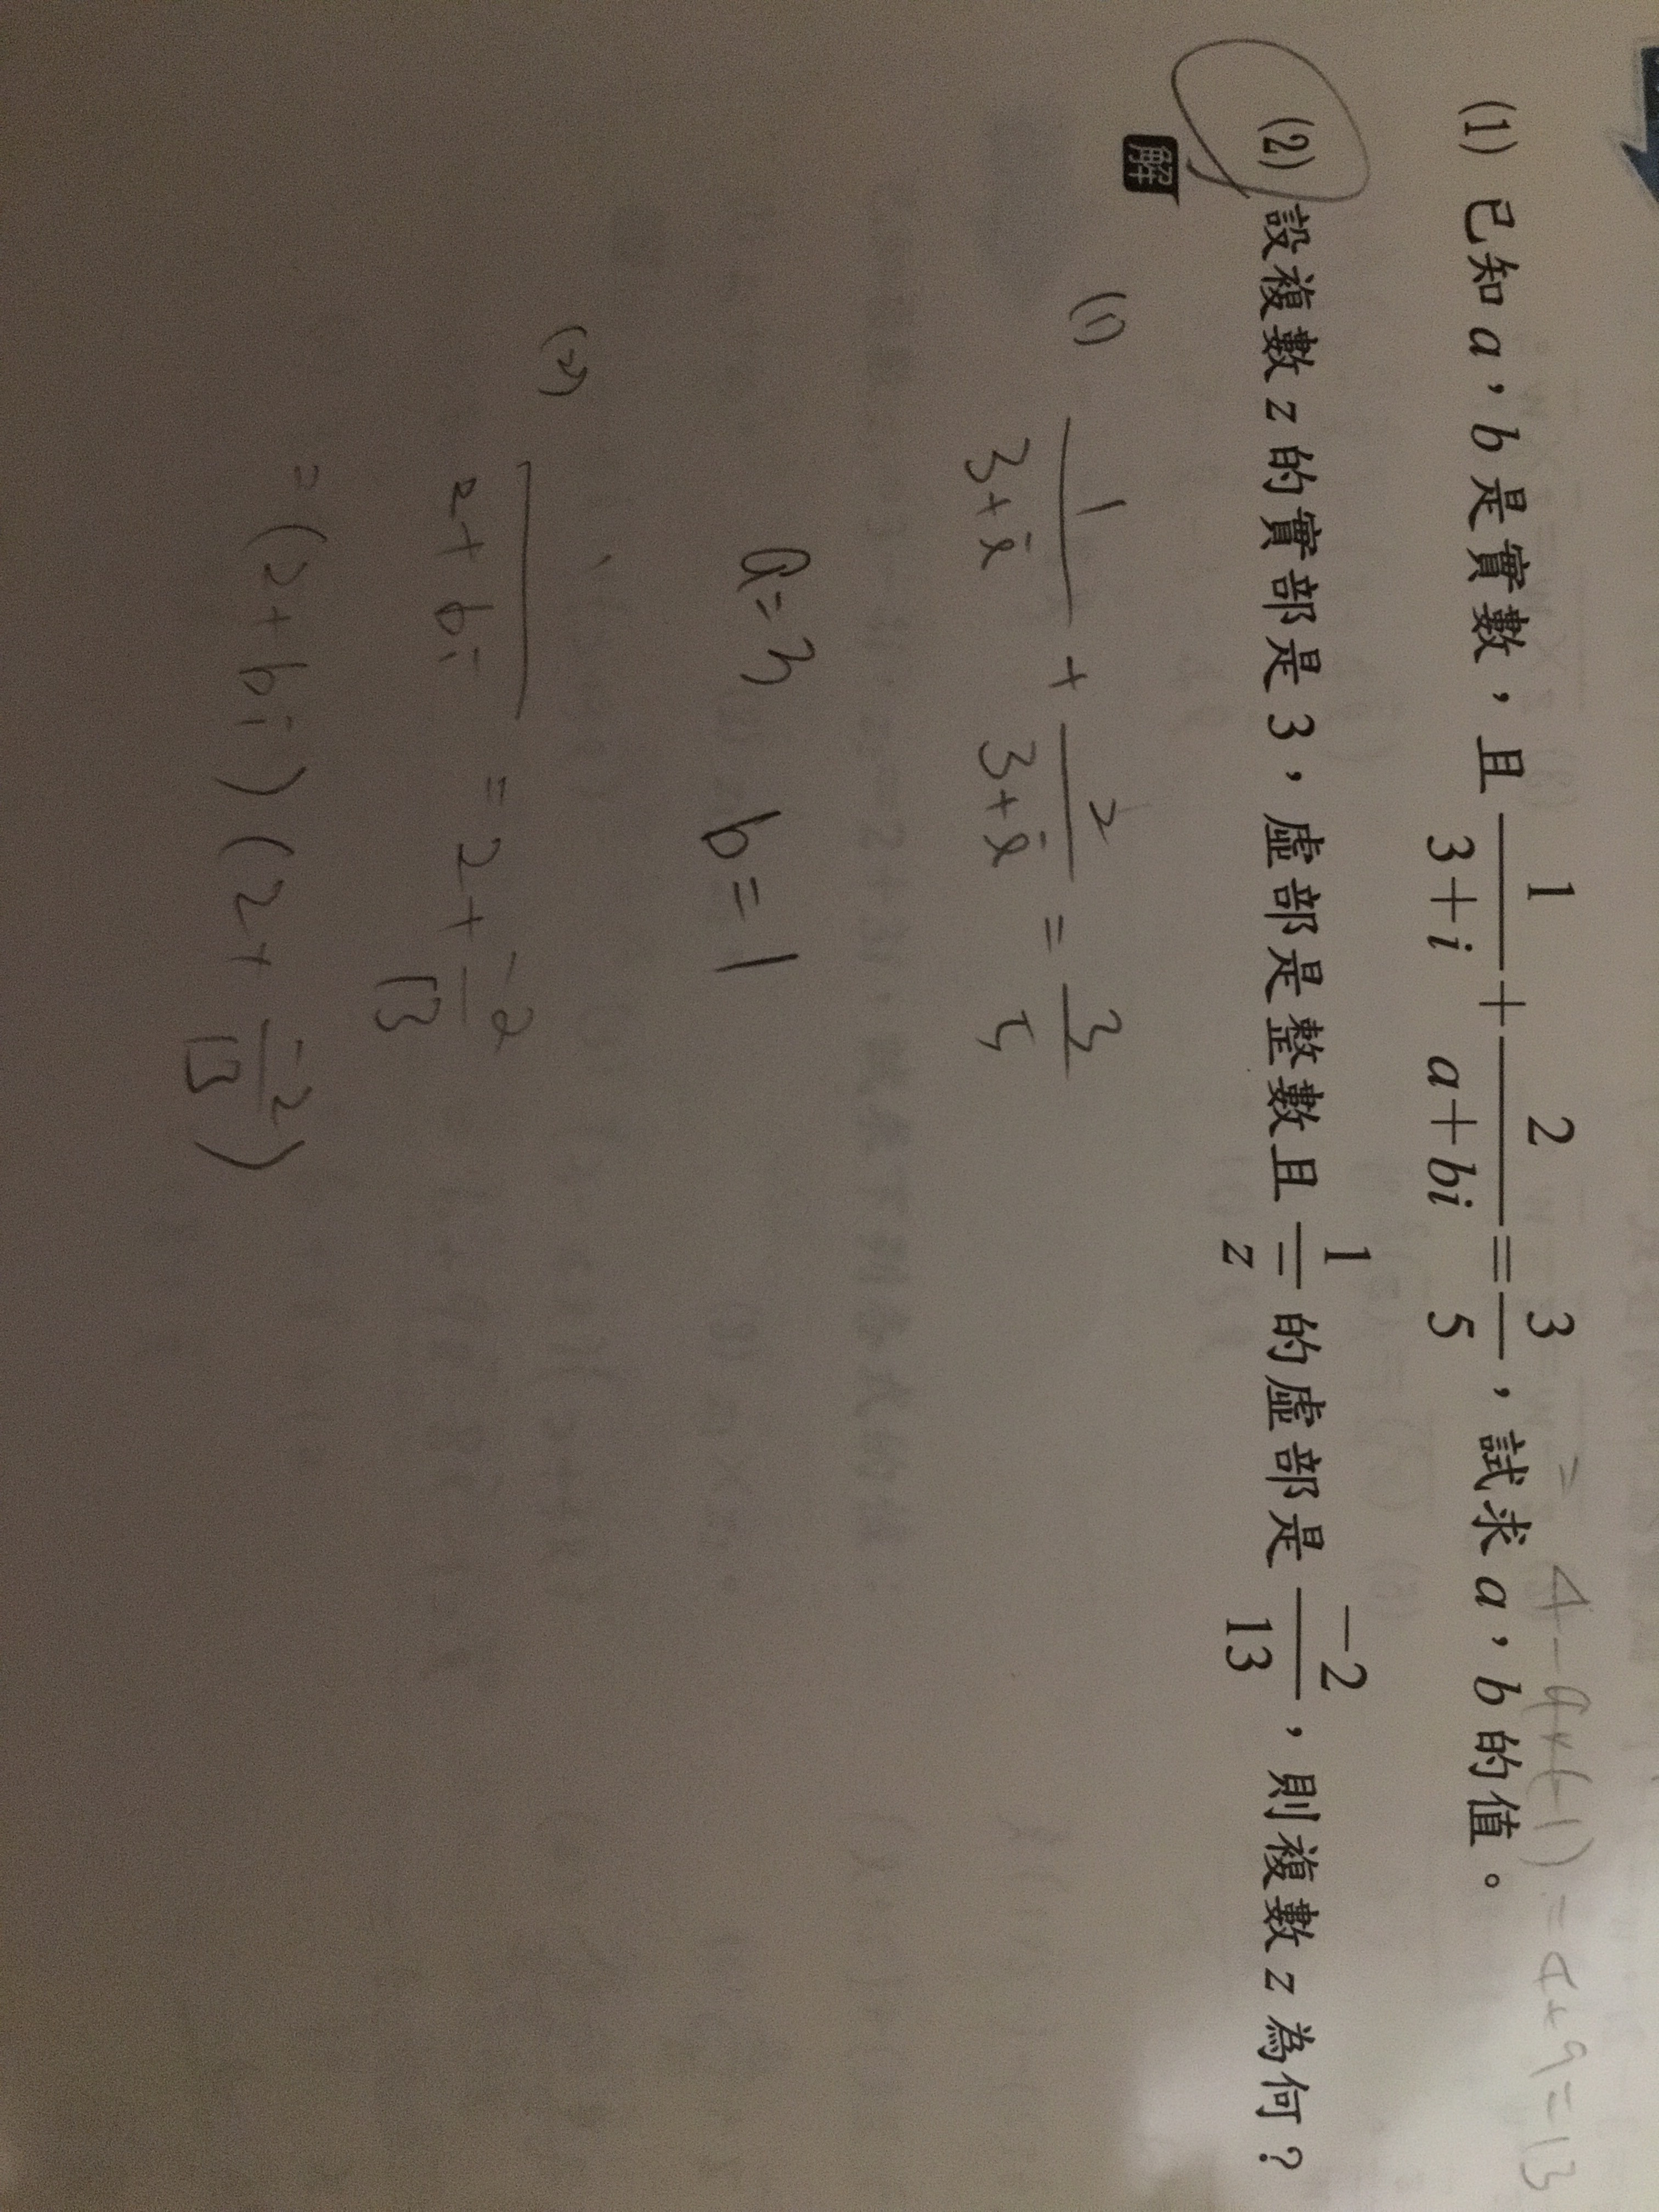 = 4-9×(-1) = 4+9=13
(1) 已知 a,b 是實數,且 1/(3+i) + 2/(a+bi) = 3/5,試求 a,b 的值。
(2) 設複數 z 的實部是 3,虛部是整數且 1/z 的虛部是 -2/13,則複數 z 為何?
解
(1) 1/(3+i) + 2/(3+i) = 3/5
a=3 b=1
(2)
2+bi = 2+ -2/13
= (2+bi) (2+ -2/13)